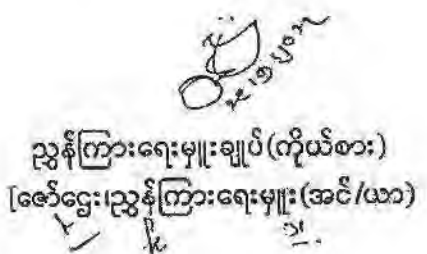 ညွှန်ကြားရေးမှူးချုပ်(ကိုယ်စား)
[ဇော်ဌေး၊ညွှန်ကြားရေးမှူး(အင်/ယာ)